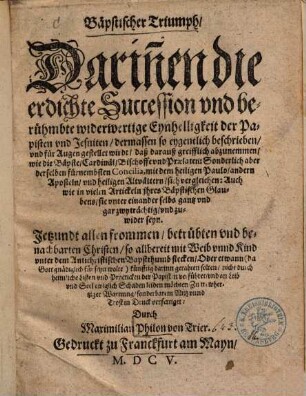 Bäpstischer Triumph/
Dariñen die
erdichte Succession vnd be-
rühmbte widerwertige Eynhelligkeit der Pa-
pisten vnd Jesuiten/ dermassen so eygentlich beschrieben/
vnd für Augen gestellet wirdt/ daß darauß greifflich abzunemmen/
wie die Bäpste/ Cardinäl/ Bischoffe vnd Prælaten: Sonderlich aber
der selben fürnembsten Concilia, mit dem heiligen Paulo/ andern
Aposteln/ vnd heiligen Altvättern/ sich vergleichen: Auch
wie in vielen Artickeln ihres Bäpstischen Glau-
bens/ sie vnter einander selbs gantz vnd
gar zwyträchtig/ vnd zu-
wider seyn.
Jetzundt allen frommen/ betrübten vnd be-
nachbarten Christen/ so allbereit mit Weib vnnd Kind
vnter dem Antichristischen Bapsthumb stecken/ Oder etwann (da
Gott gnädiglich für seyn wolte) künfftig darinn gerahten solten/
vnd Seel ewiglich Schaden leiden möchten
tziger Warnung/ sonderbarem Nutz vnnd
Trost in Druck verfertiget/
Durch
Maximilian Philon von Trier.
Gedruckt zu Franckfurt am Mayn/
M. DC V.